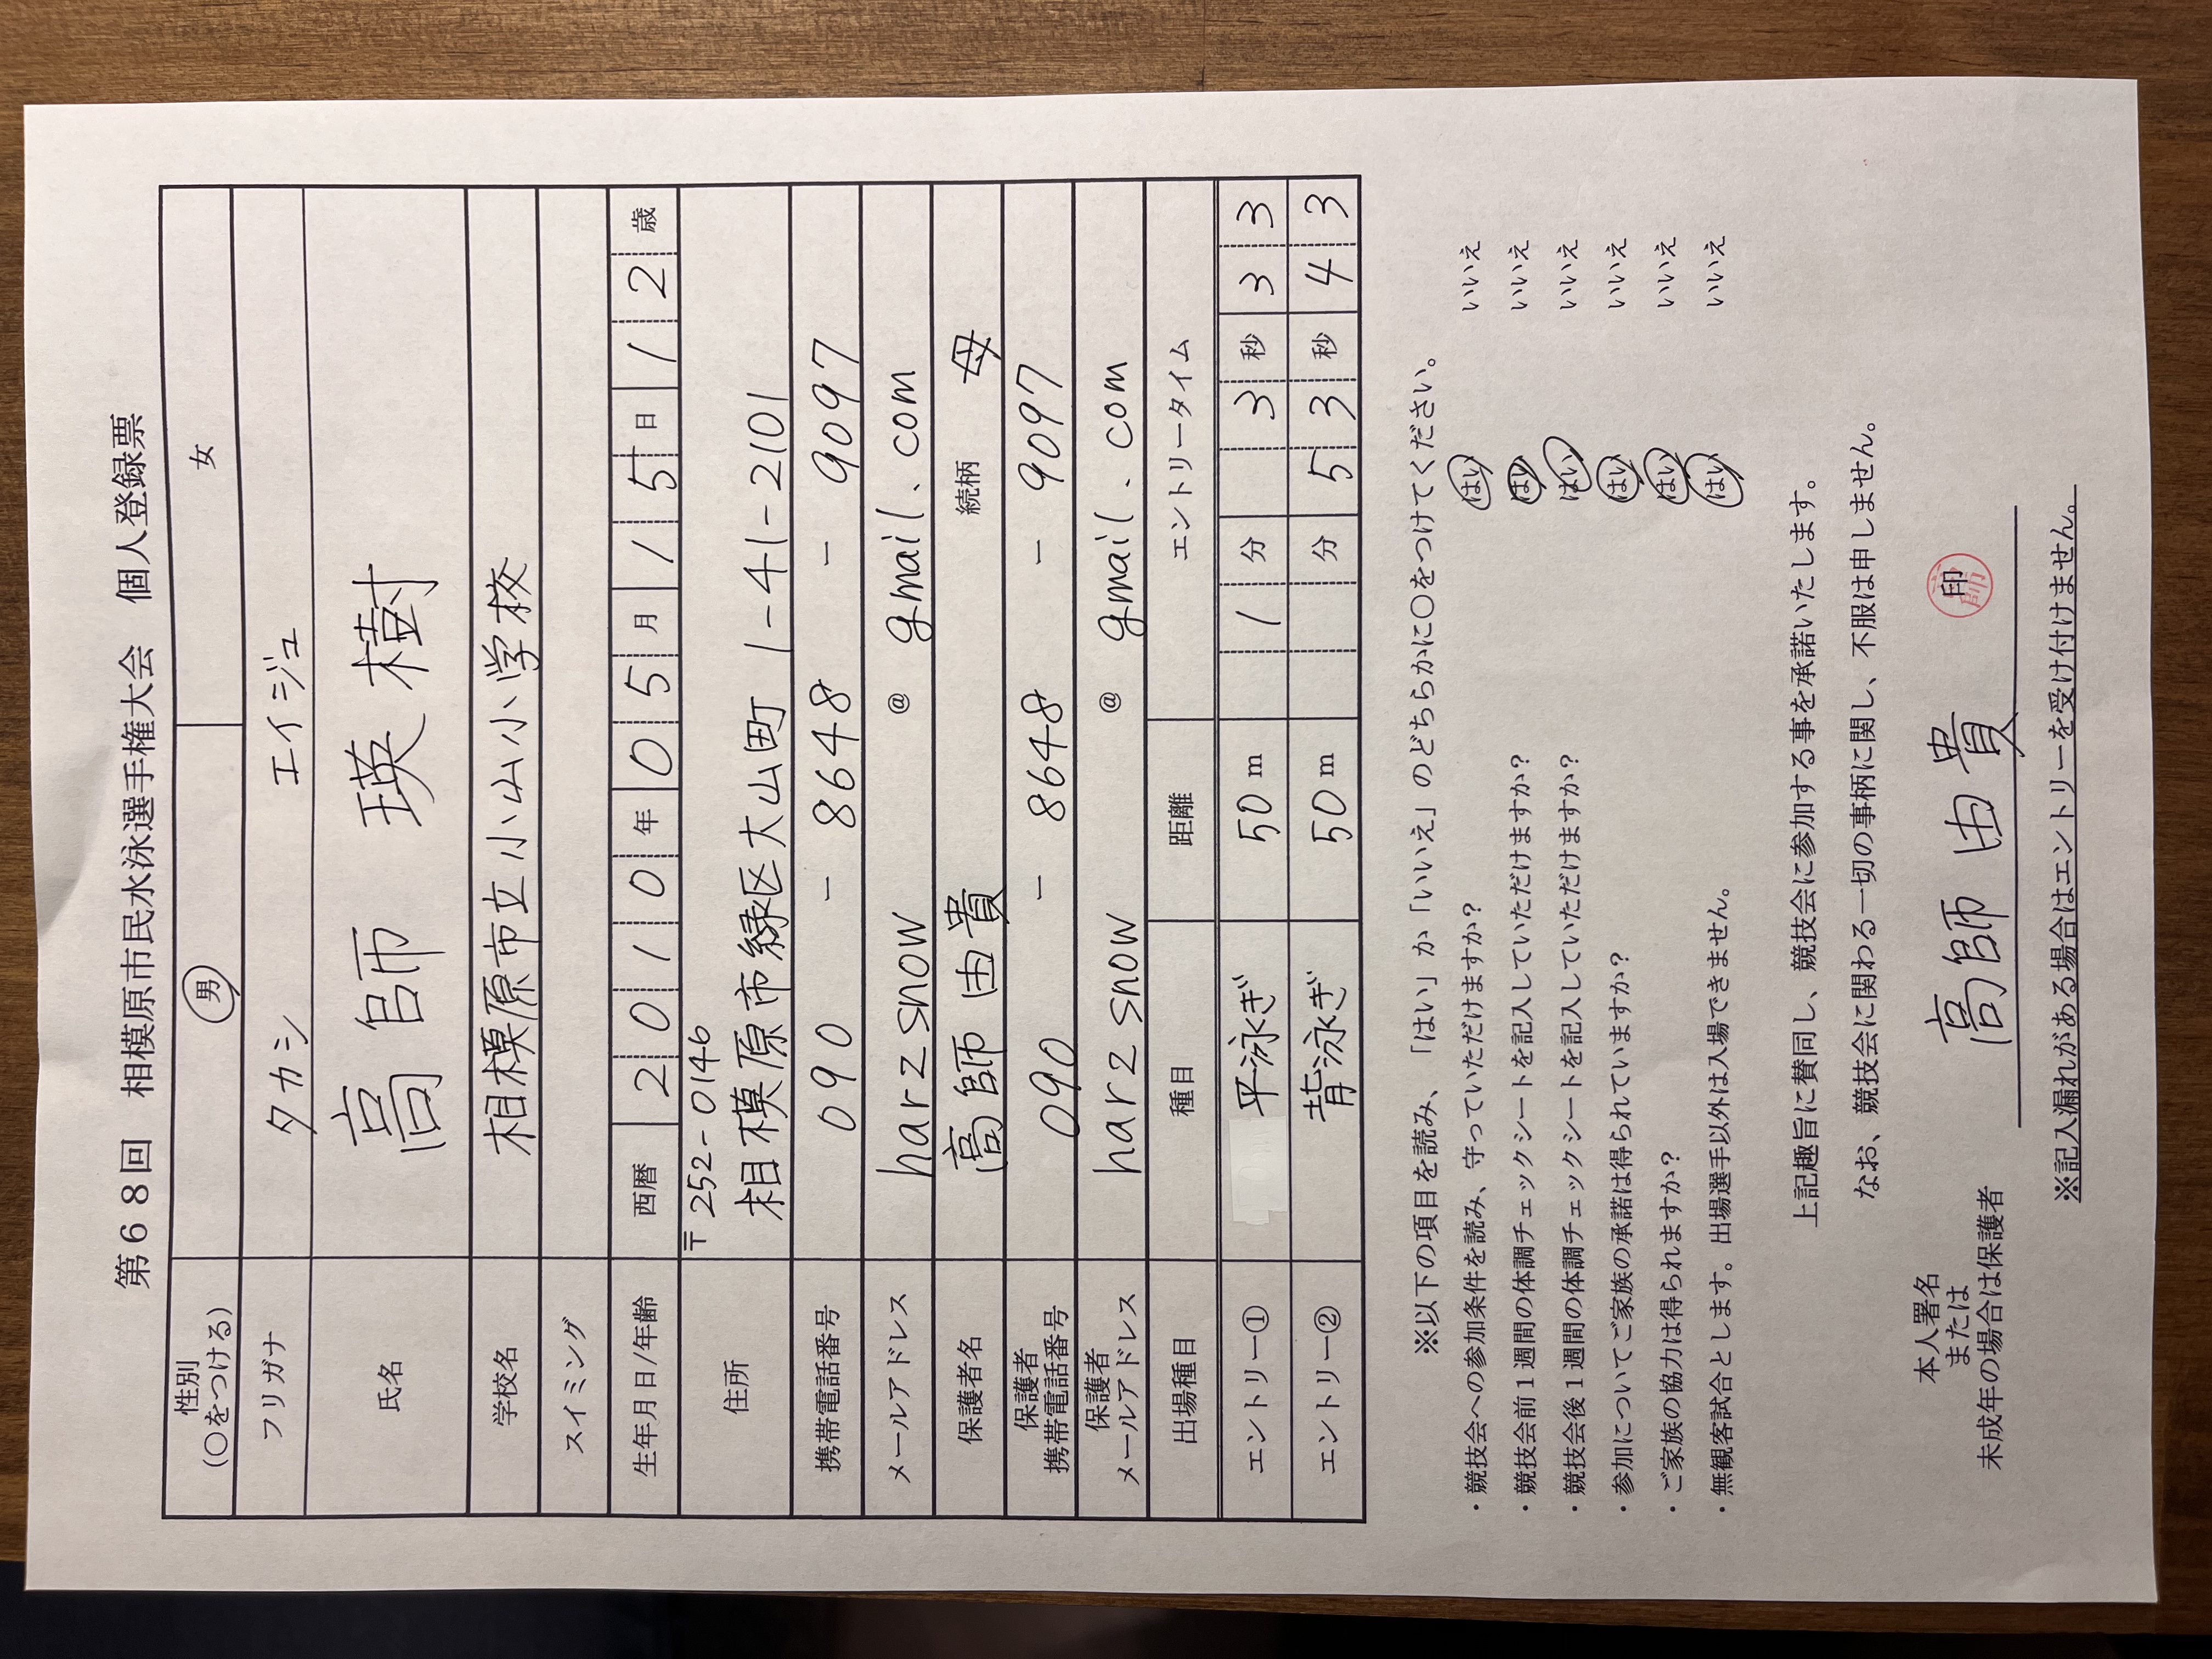 第68回 相模原市民水泳選手権大会 個人登録票
性別
(〇をつける) 男 女
フリガナ タカシ エイジュ
氏名 高師 瑛樹
学校名 相模原市立小山小学校
スイミング
生年月日/年齢 西暦 2010年05月15日12歳
住所 〒252-0146
相模原市緑区大山町 1-41-2101
携帯電話番号 090 - 8648 - 9097
メールアドレス harzsnow @ gmail.com
保護者名 高師 由貴 続柄 母
保護者
携帯電話番号 090 - 8648 - 9097
保護者
メールアドレス harzsnow @ gmail.com
出場種目 種目 距離 エントリータイム
エントリー① 平泳ぎ 50m 1分 3秒33
エントリー② 背泳ぎ 50m 分53秒43
※以下の項目を読み、「はい」か「いいえ」のどちらかに〇をつけてください。
・競技会への参加条件を読み、守っていただけますか? はい いいえ
・競技会前1週間の体調チェックシートを記入していただけますか? はい いいえ
・競技会後1週間の体調チェックシートを記入していただけますか? はい いいえ
・参加についてご家族の承諾は得られていますか? はい いいえ
・ご家族の協力は得られますか? はい いいえ
・無観客試合とします。出場選手以外は入場できません。 はい いいえ
上記趣旨に賛同し、競技会に参加する事を承諾いたします。
なお、競技会に関わる一切の事柄に関し、不服は申しません。
本人署名
または
未成年の場合は保護者 高師 由貴 印 高師
※記入漏れがある場合はエントリーを受け付けません。